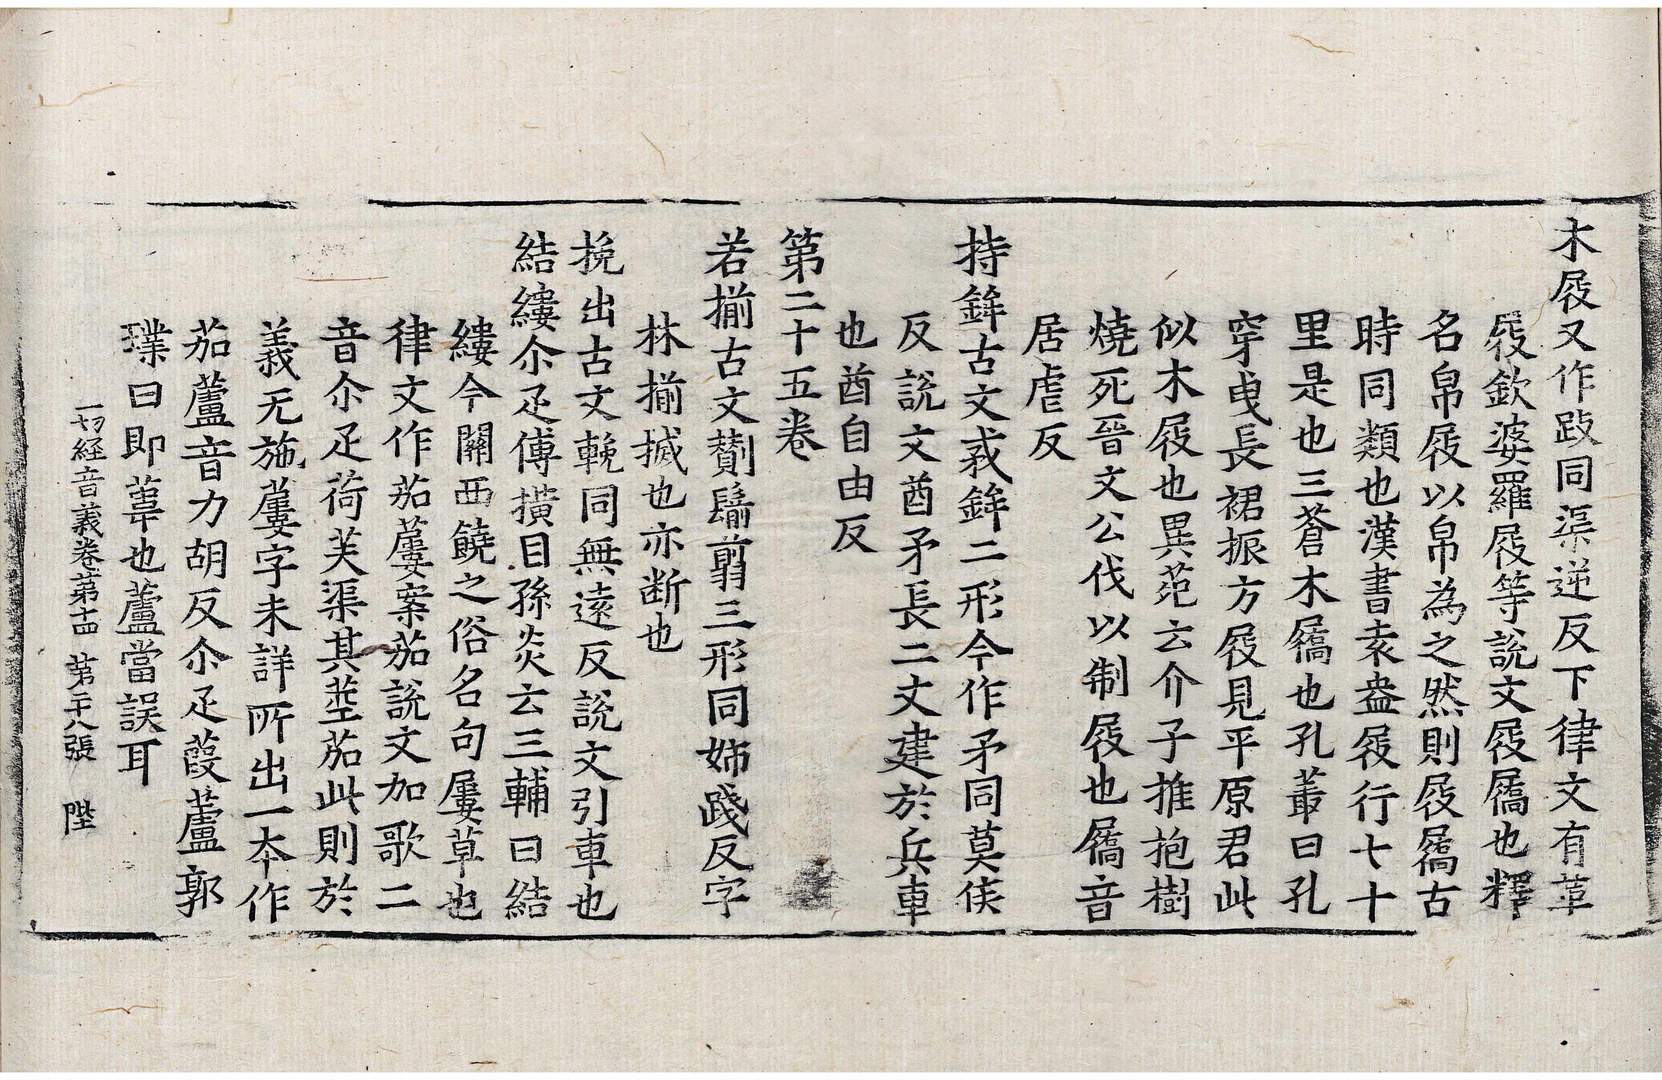 木屐又作跂同渠逆反下律文有草
屐欽婆羅屐等說文屐屩也釋
名帛屐以帛為之然則屐屩古
時同類也漢書袁盎屐行七十
里是也三蒼木屩也孔叢曰孔
穿曳長裾振方屐見平原君此
似木屐也異苑云介子推抱樹
燒死晉文公伐以制屐也屩音
居虐反
持鉾古文𢦧鉾二形今作矛同莫侯
反說文酋矛長二丈建於兵車
也酋自由反
第二十五卷
若揃古文鬋翦三形同姊踐反字
林揃搣也亦断也
挽出古文輓同無遠反說文引車也
結縷尒疋傅橫目孫炎云三輔曰結
縷今關西饒之俗名句屢草也
律文作茄蔞案茄說文加歌二
音尒疋荷芙渠其莖茄此則於
義无施蔞字未詳所出一本作
茄蘆音力胡反尒疋葭蘆郭
璞曰即葦也蘆當誤耳
一切經音義卷第十四 第二十八張 陛